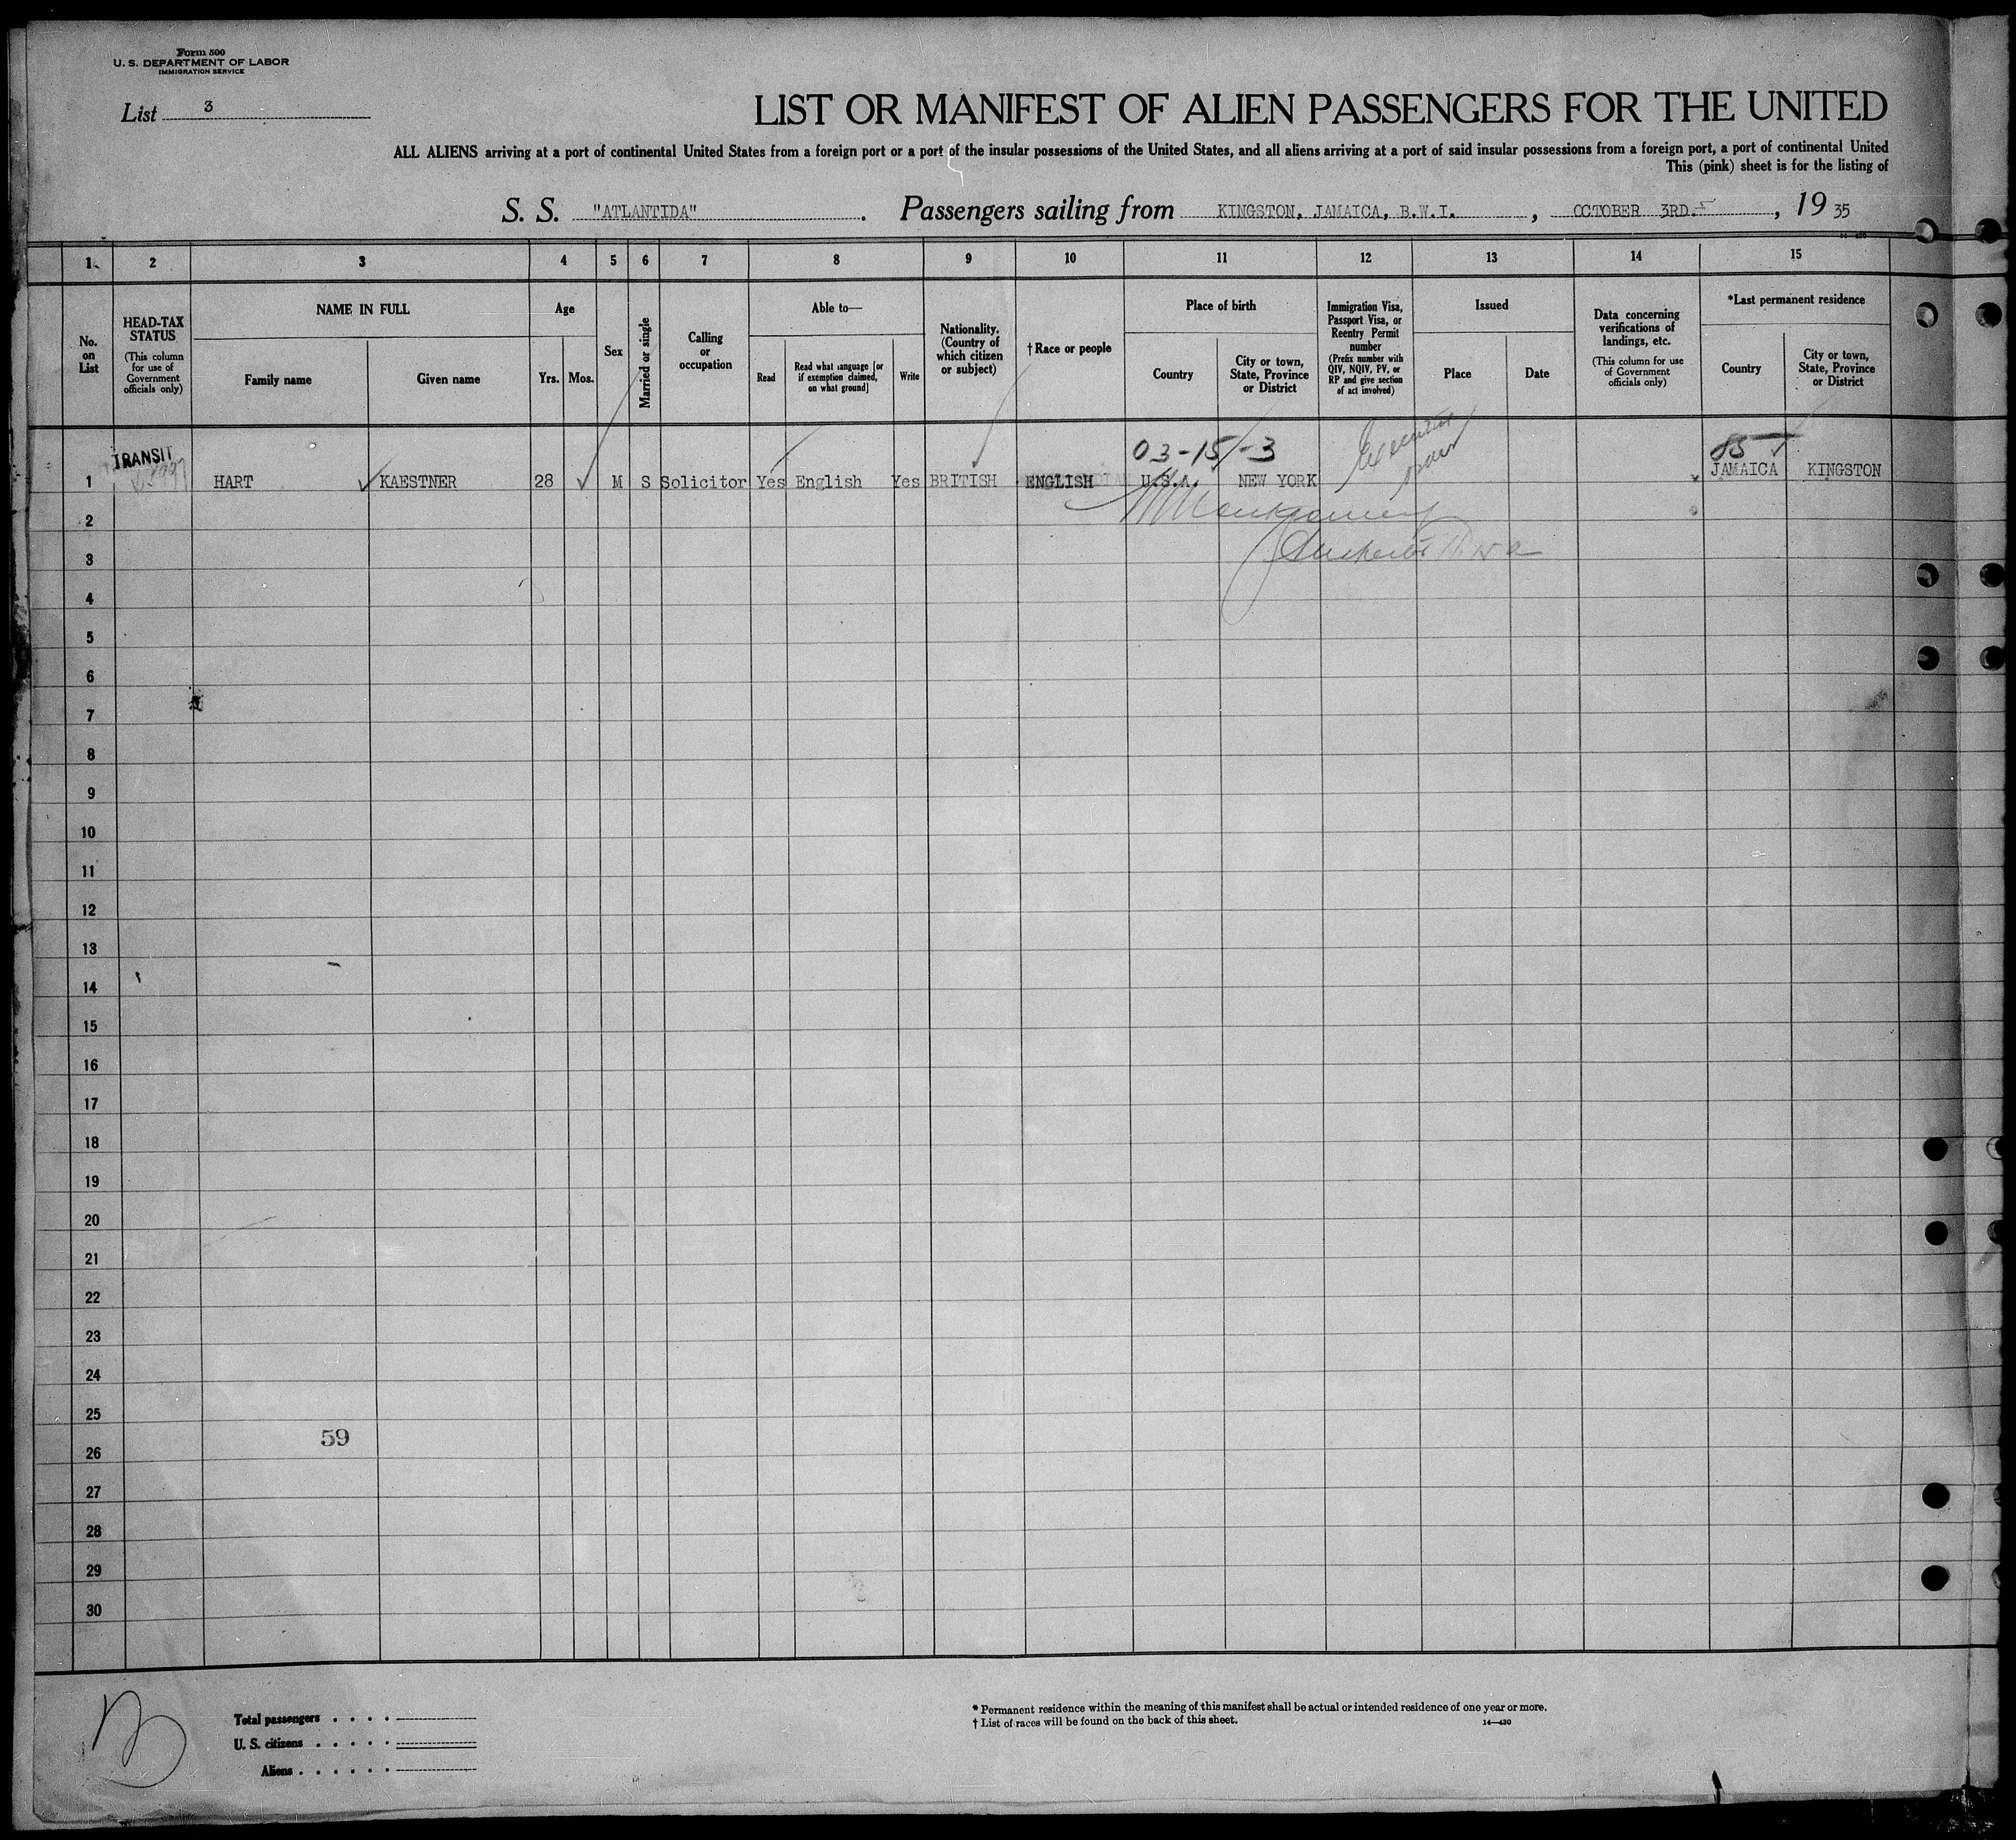 Form 500
U. S. DEPARTMENT OF LABOR
IMMIGRATION SERVICE
List 3
LIST OR MANIFEST OF ALIEN PASSENGERS FOR THE UNITED
ALL ALIENS arriving at a port of continental United States from a foreign port or a port of the insular possessions of the United States, and all aliens arriving at a port of said insular possessions from a foreign port, a port of continental United
This (pink) sheet is for the listing of
S. S. "ATLANTIDA". Passengers sailing from KINGSTON, JAMAICA, B.W.I., OCTOBER 3RD., 19 35
1 2 3 4 5 6 7 8 9 10 11 12 13 14 15
No. on List
HEAD-TAX STATUS
(This column for use of Government officials only)
NAME IN FULL
Family name
Given name
Age
Yrs. Mos.
Sex
Married or single
Calling or occupation
Able to—
Read
Read what language [or if exemption claimed, on what ground]
Write
Nationality. (Country of which citizen or subject)
†Race or people
Place of birth
Country
City or town, State, Province or District
Immigration Visa, Passport Visa, or Reentry Permit number
(Prefix number with QIV, NQIV, PV, or RP and give section of act involved)
Issued
Place
Date
Data concerning verifications of landings, etc.
(This column for use of Government officials only)
*Last permanent residence
Country
City or town, State, Province or District
TRANSIT
03-15-3
85
1 HART KAESTNER 28 M S Solicitor Yes English Yes BRITISH ENGLISH U.S.A. NEW YORK JAMAICA KINGSTON
2
3
4
5
6
7
8
9
10
11
12
13
14
15
16
17
18
19
20
21
22
23
24
25
59
26
27
28
29
30
Total passengers
U. S. citizens
Aliens
* Permanent residence within the meaning of this manifest shall be actual or intended residence of one year or more.
† List of races will be found on the back of this sheet.
14—430